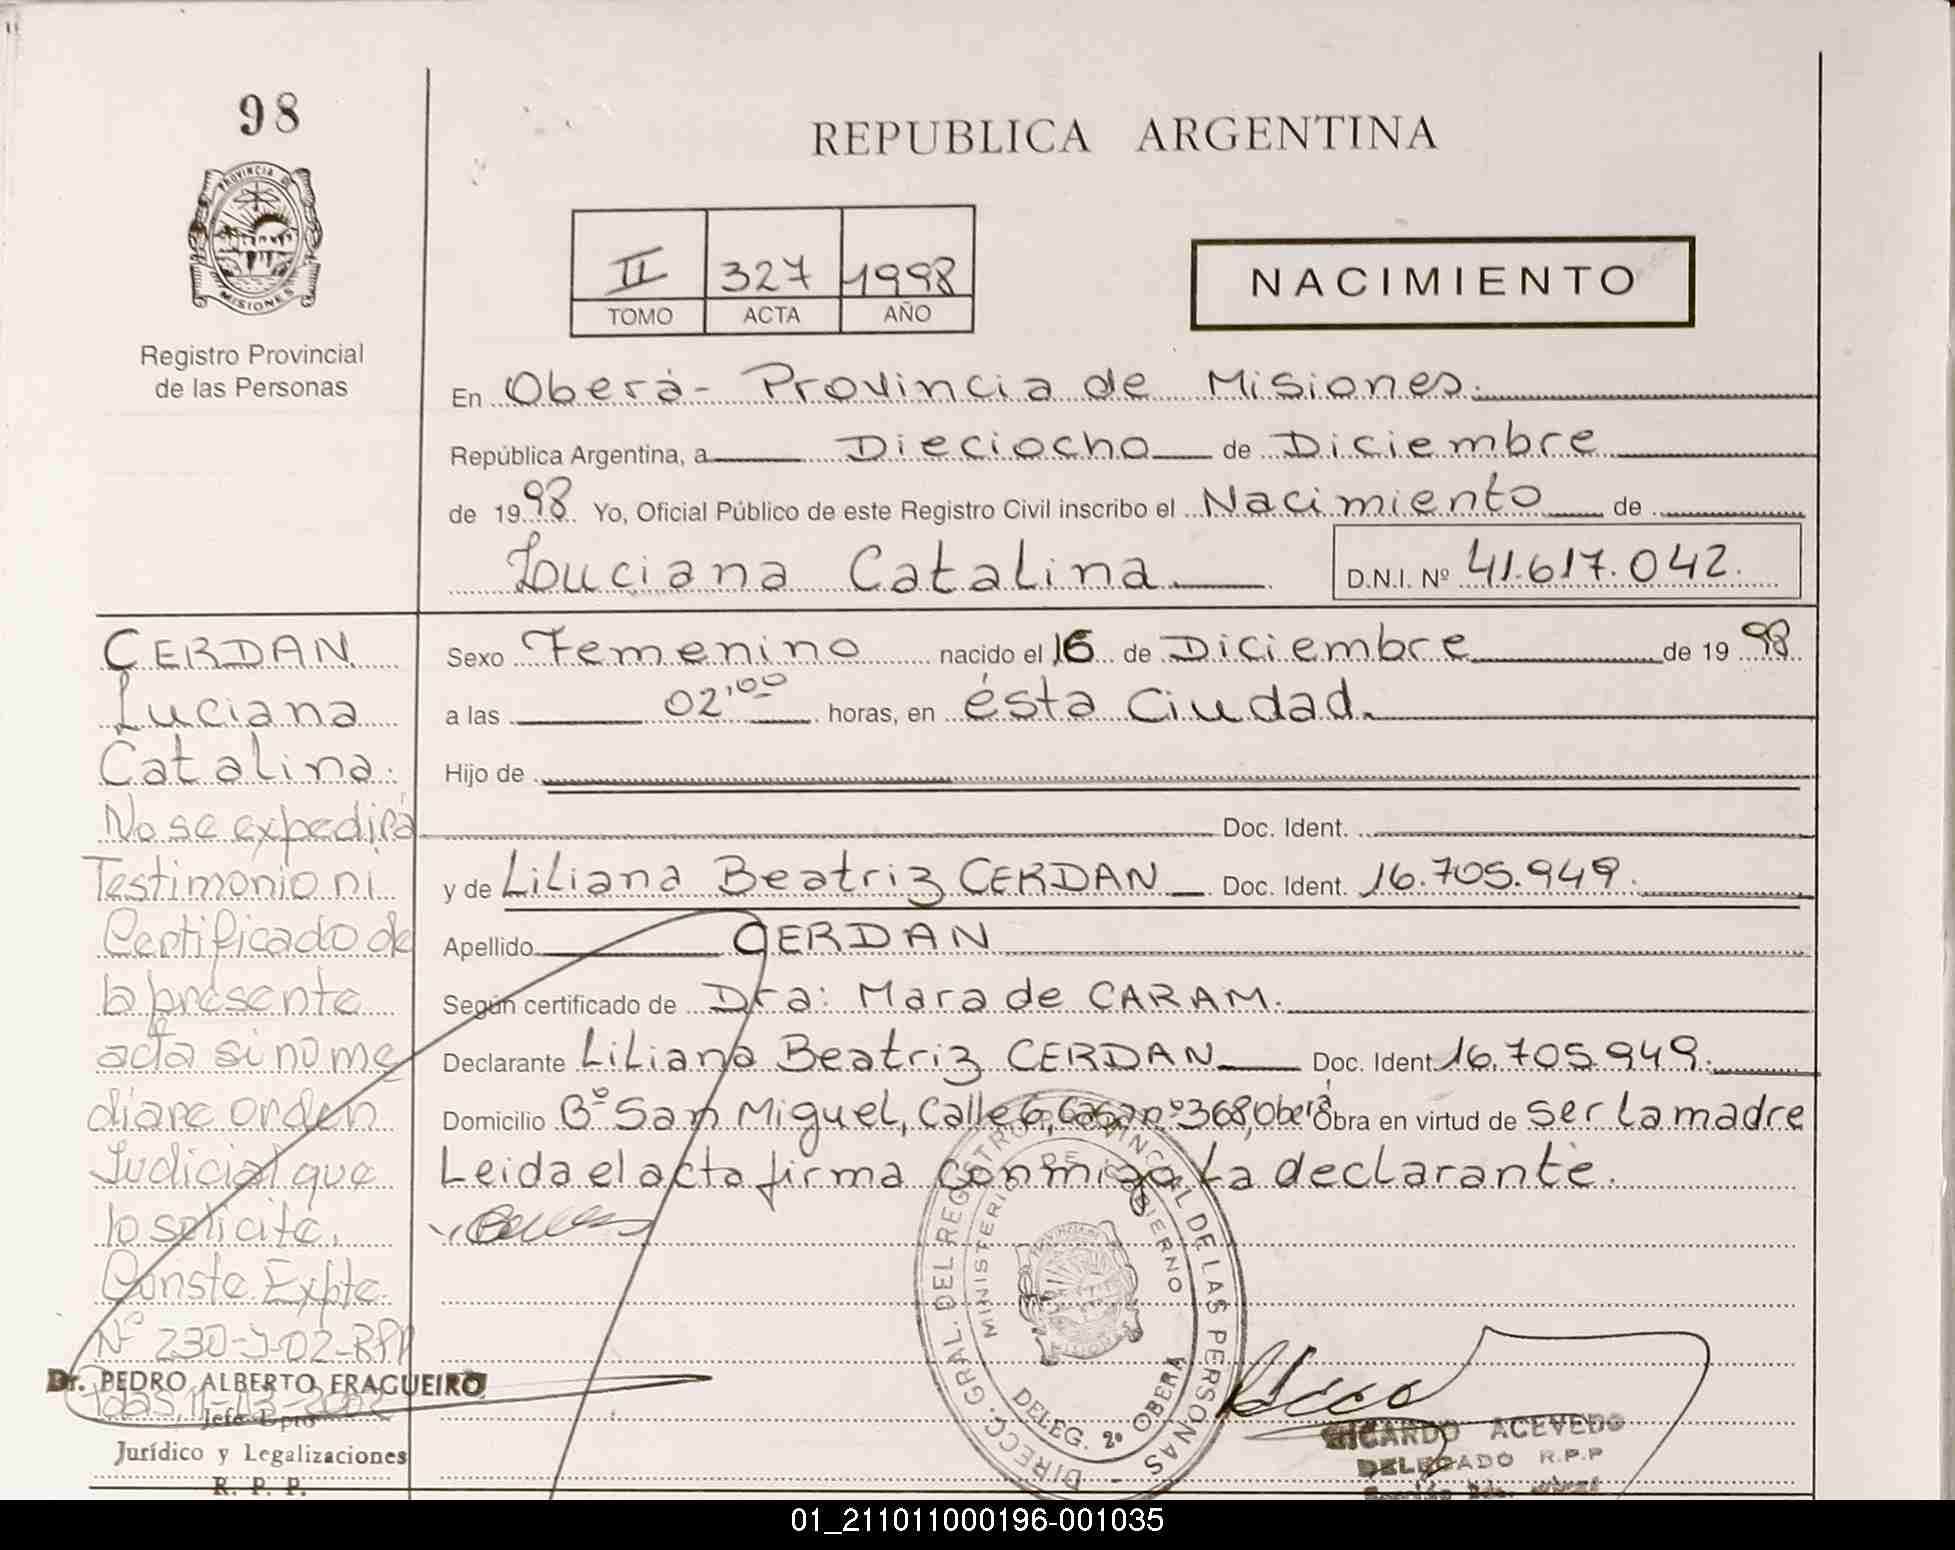 98
PROVINCIA DE
MISIONES
Registro Provincial
de las Personas
REPUBLICA ARGENTINA
II 327 1998
TOMO ACTA AÑO
NACIMIENTO
En Oberá - Provincia de Misiones.
República Argentina, a Dieciocho de Diciembre
de 1998 Yo, Oficial Público de este Registro Civil inscribo el Nacimiento de
Luciana Catalina D.N.I. Nº 41.617.042.
Sexo Femenino nacido el 16 de Diciembre de 1998
a las 02'00 horas, en ésta Ciudad.
Hijo de
Doc. Ident.
y de Liliana Beatriz CERDAN Doc. Ident. 16.705.949.
Apellido CERDAN
Según certificado de Dra: Mara de CARAM.
Declarante Liliana Beatriz CERDAN Doc. Ident 16.705.949.
Domicilio Bº San Miguel, Calle 6, Casa nº 368, Oberá Obra en virtud de ser la madre
Leida el acta firma conmigo la declarante.
CERDAN
Luciana
Catalina.
No se expedirá
Testimonio ni
Certificado de
la presente
acta si no me
diare orden
Judicial que
lo solicite.
Conste Expte.
Nº 230-J-02-RPP
Pdas, 11-03-2002
Dr. PEDRO ALBERTO FRAGUEIRO
Jefe Dpto
Jurídico y Legalizaciones
R. P. P.
DIRECC. GRAL. DEL REGISTRO PROVINCIAL DE LAS PERSONAS -
MINISTERIO DE GOBIERNO
DELEG. 2ª OBERA
RICARDO ACEVEDO
DELEGADO R.P.P
01_211011000196-001035